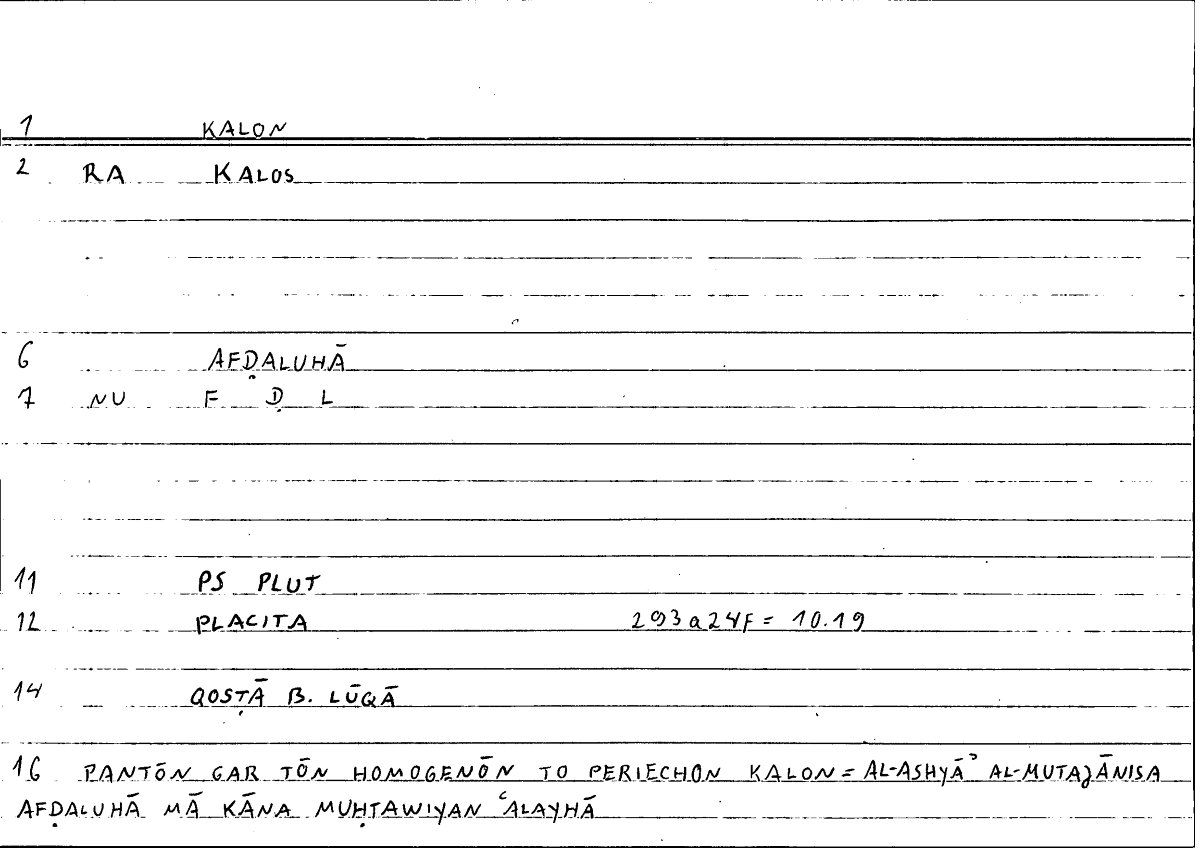 1 KALON
2 RA KALOS
6 AFḌALUHĀ
7 NU F Ḍ L
11 PS PLUT
12 PLACITA 293a24F = 10.19
14 QOSṬĀ B. LŪQĀ
16 PANTŌN GAR TŌN HOMOGENŌN TO PERIECHON KALON = AL-ASHYĀʾ AL-MUTAJĀNISA
AFḌALUHĀ MĀ KĀNA MUḤTAWIYAN ʿALAYHĀ